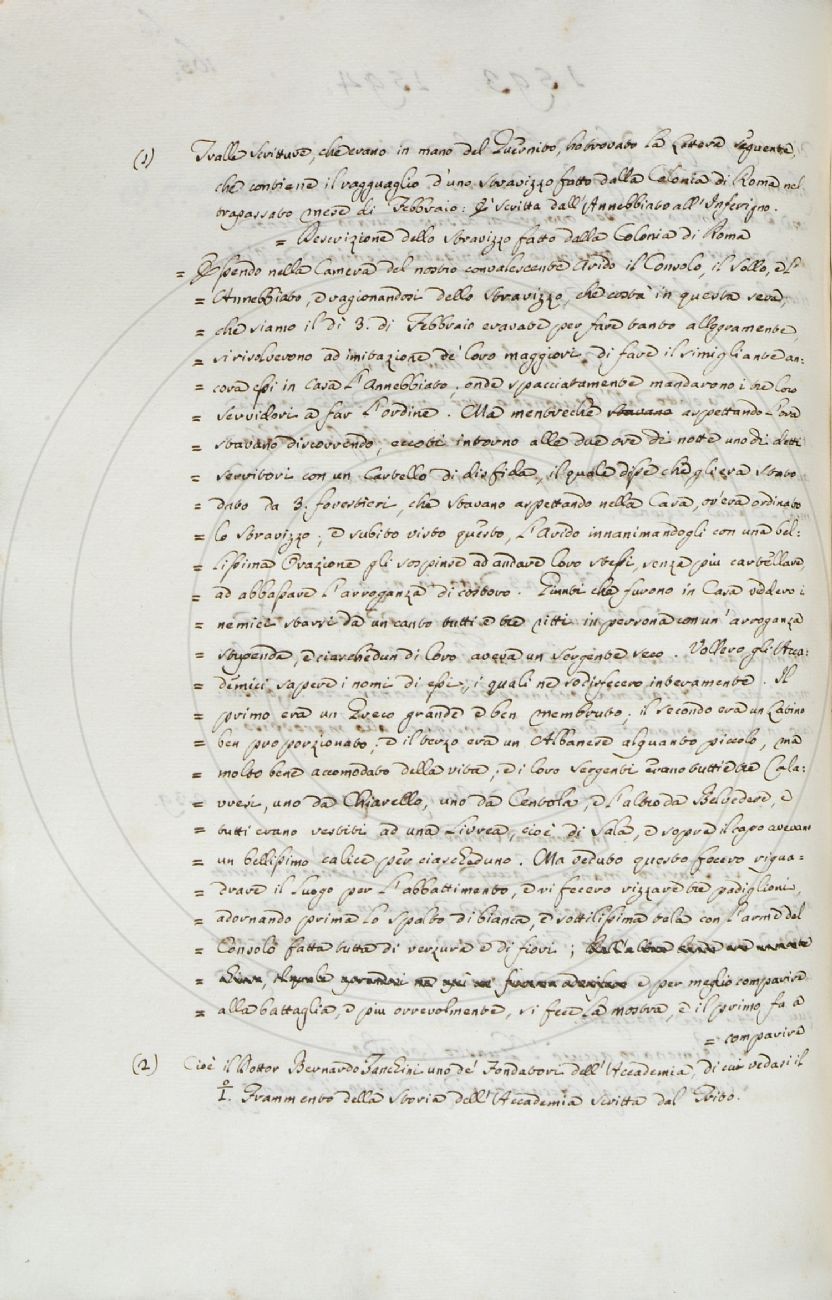 (1) Tralle Scritture, che erano in mano del Guernito, ho trovato la Lettera seguente,
che contiene il ragguaglio d'uno Stravizzo fatto dalla Colonia di Roma nel
trapassato mese di Febbraio: È scritta dall'Annebbiato all'Inferigno.
= Descrizione dello Stravizzo fatto dalla Colonia di Roma
= Essendo nella Camera del nostro convalescente Arido il Consolo, il Sollo, e l'
= Annebbiato, e ragionandosi dello Stravizzo, che costà in questa sera,
= che siamo il dì 3. di Febbraio eravate per fare tanto allegramente,
= si risolverono ad imitazione de' loro maggiori di fare il simigliante an=
= cora essi in Casa l'Annebbiato, onde spacciatamente mandarono i tre loro
= Servidori a far l'ordine. Ma mentrechè stavano aspettando l'ora
= stavano discorrendo, eccoti intorno alle due ore di notte uno di detti
= servitori con un Cartello di disfida, il quale disse che gli era stato
= dato da 3. forestieri, che stavano aspettando nella Casa, ov'era ordinato
= lo Stravizzo; e subito visto questo, l'Arido innanimandogli con una bel=
= lissima Orazione gli sospinse ad andare loro stessi, senza più cartellare,
= ad abbassare l'arroganza di costoro. Giunti che furono in Casa veddero i
= nemici starsi da un canto tutti e tre ritti in persona con un'arroganza
= stupenda, e ciaschedun di loro aveva un Sergente seco. Vollero gli Acca=
= demici sapere i nomi di essi, i quali ne sodisfecero interamente. Il
= primo era un Greco grande e ben membruto; il secondo era un Latino
= ben proporzionato; e il terzo era un Albanese alquanto piccolo, ma
= molto bene accomodato della vita; e i loro Sergenti erano tutti e tre Cala=
= vresi, uno da Chiarello, uno da Centola, e l'altro da Belvedere, e
= tutti erano vestiti ad una Livrea, cioè di Sala, e sopra il capo avevano
= un bellissimo calice per ciascheduno. Ma veduto questo fecero riqua=
= drare il luogo per l'abbattimento, e vi fecero rizzare tre padiglioni,
= adornando prima lo Spalto di bianca, e sottilissima tela con l'arme del
= Consolo fatta tutta di verzura e di fiori;
= e per meglio comparire
= alla battaglia, e più orrevolmente, si fece la mostra, e il primo fu a
= comparire
(2) Cioè il Dottor Bernardo Zanchini uno de' Fondatori dell'Accademia, di cui vedasi il
I.º Frammento della Storia dell'Accademia scritta dal Trito.